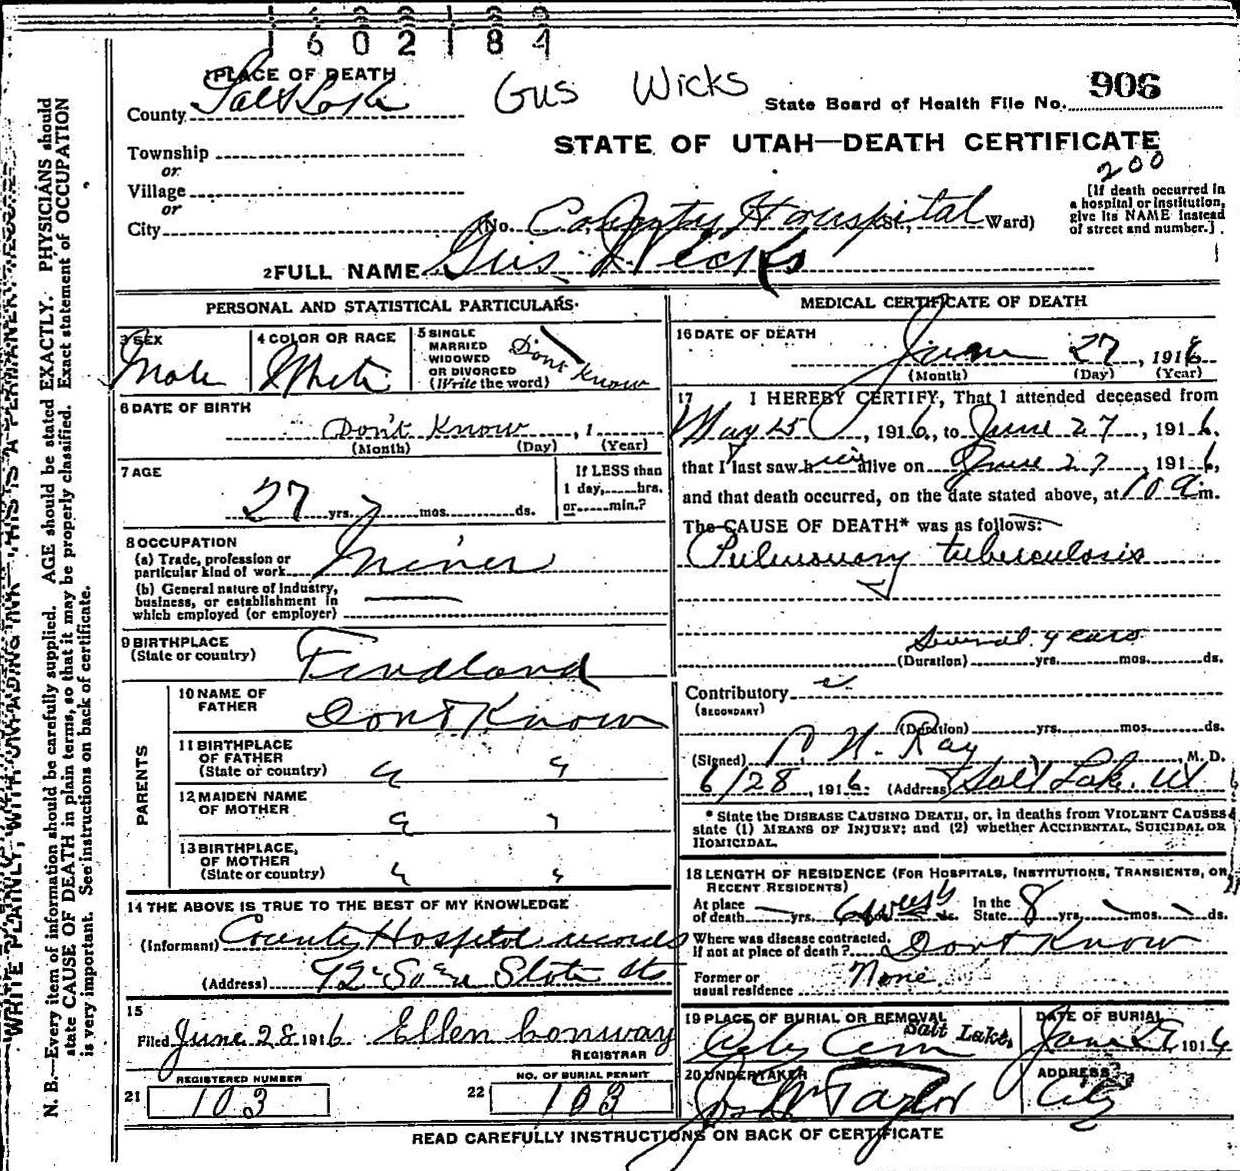 1602184
1 PLACE OF DEATH
County Salt Lake
Gus Wicks
State Board of Health File No. 906
Township
or
Village
or
City
STATE OF UTAH—DEATH CERTIFICATE
200
(No. County Hospital St., Ward)
[If death occurred in a hospital or institution, give its NAME instead of street and number.]
2 FULL NAME Gus Wicks
PERSONAL AND STATISTICAL PARTICULARS
3 SEX Male
4 COLOR OR RACE White
5 SINGLE MARRIED WIDOWED OR DIVORCED (Write the word) Dont Know
6 DATE OF BIRTH
Don't Know, 1
(Month) (Day) (Year)
7 AGE
27 yrs. mos. ds.
If LESS than 1 day, hrs. or min.?
8 OCCUPATION
(a) Trade, profession or particular kind of work Miner
(b) General nature of industry, business, or establishment in which employed (or employer)
9 BIRTHPLACE (State or country) Findland
PARENTS
10 NAME OF FATHER Dont Know
11 BIRTHPLACE OF FATHER (State or country) " "
12 MAIDEN NAME OF MOTHER " "
13 BIRTHPLACE, OF MOTHER (State or country) " "
14 THE ABOVE IS TRUE TO THE BEST OF MY KNOWLEDGE
(Informant) County Hospital records
(Address) State St
15
Filed June 28 1916 Ellen Conway
REGISTRAR
REGISTERED NUMBER
21 103
NO. OF BURIAL PERMIT
22 103
MEDICAL CERTIFICATE OF DEATH
16 DATE OF DEATH
June 27, 1916
(Month) (Day) (Year)
17 I HEREBY CERTIFY, That I attended deceased from
May 15, 1916, to June 27, 1916,
that I last saw him alive on June 27, 1916,
and that death occurred, on the date stated above, at 10 a m.
The CAUSE OF DEATH* was as follows:
Pulmonary tuberculosis
Several years
(Duration) yrs. mos. ds.
Contributory
(SECONDARY)
(Duration) yrs. mos. ds.
(Signed) Ray, M. D.
6/28, 1916. (Address) Salt Lake, Ut
* State the DISEASE CAUSING DEATH, or, in deaths from VIOLENT CAUSES state (1) MEANS OF INJURY; and (2) whether ACCIDENTAL, SUICIDAL OR HOMICIDAL.
18 LENGTH OF RESIDENCE (FOR HOSPITALS, INSTITUTIONS, TRANSIENTS, OR RECENT RESIDENTS)
At place of death yrs. 6 weeks ds. In the State 8 yrs. mos. ds.
Where was disease contracted, if not at place of death? Dont Know
Former or usual residence None
19 PLACE OF BURIAL OR REMOVAL
City Cem Salt Lake.
DATE OF BURIAL
June 29, 1916
20 UNDERTAKER
Jos Wm Taylor
ADDRESS
City
READ CAREFULLY INSTRUCTIONS ON BACK OF CERTIFICATE
WRITE PLAINLY, WITH UNFADING INK—THIS IS A PERMANENT RECORD
N. B.—Every item of information should be carefully supplied. AGE should be stated EXACTLY. PHYSICIANS should
state CAUSE OF DEATH in plain terms, so that it may be properly classified. Exact statement of OCCUPATION
is very important. See instructions on back of certificate.